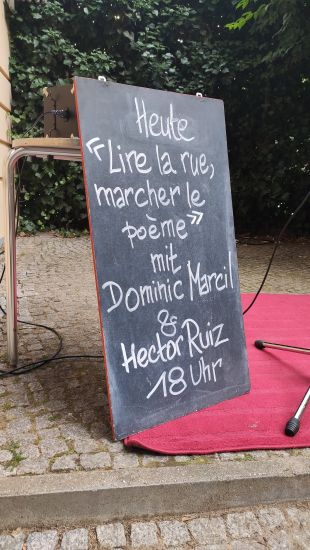 Heute
«Lire la rue,
marcher le
poème»
mit
Dominic Marcil
&
Hector Ruiz
18 Uhr